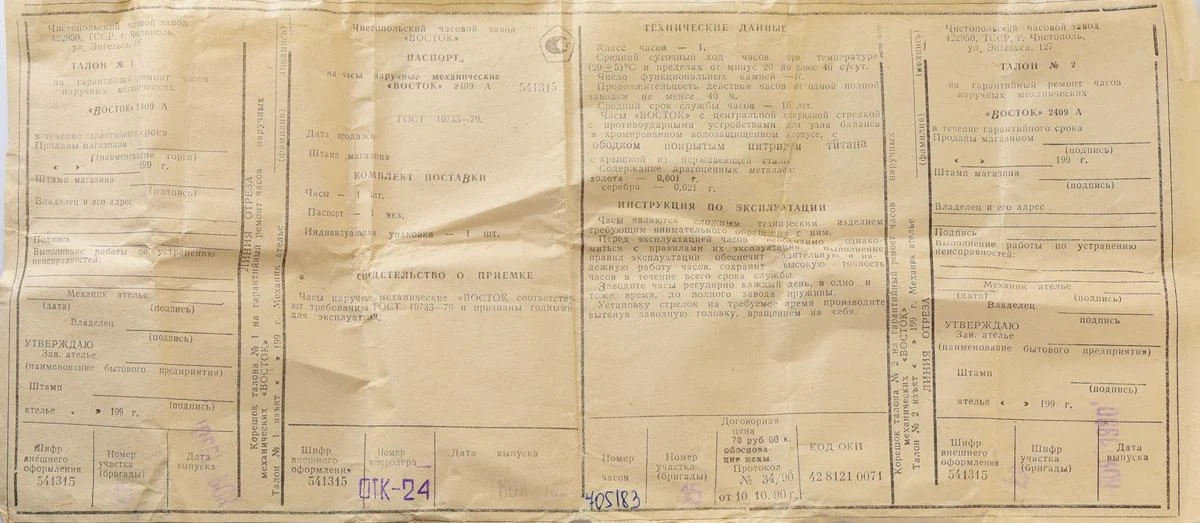 Чистопольский часовой завод
422950, ТССР, г. Чистополь,
ул. Энгельса, 127
ТАЛОН № 1
на гарантийный ремонт часов
наручных механических
«ВОСТОК» 2409 А
в течение гарантийного срока
Проданы магазином
(наименование торга)
« » 199 г.
Штамп магазина
(подпись)
Владелец и его адрес
Подпись
Выполнение работы по устранению
неисправностей:
Механик ателье
(дата) (подпись)
Владелец
(подпись)
УТВЕРЖДАЮ
Зав. ателье
(наименование бытового предприятия)
Штамп
(подпись)
ателье « » 199 г.
Шифр внешнего оформления
541315
Номер участка (бригады)
Дата выпуска
ЛИНИЯ ОТРЕЗА
Корешок талона № 1 на гарантийный ремонт часов наручных
механических «ВОСТОК»
Талон № 1 изъят « » 199 г. Механик ателье
(фамилия) (подпись)
Чистопольский часовой завод
«ВОСТОК»
ПАСПОРТ
на часы наручные механические
«ВОСТОК» 2409 А 541315
ГОСТ 10733—79.
Дата продажи
Штамп магазина
КОМПЛЕКТ ПОСТАВКИ
Часы — 1 шт.
Паспорт — 1 экз.
Индивидуальная упаковка — 1 шт.
СВИДЕТЕЛЬСТВО О ПРИЕМКЕ
Часы наручные механические «ВОСТОК соответству-
ют требованиям ГОСТ 10733—79 и признаны годными
для эксплуатации.
Шифр внешнего оформления
541315
Номер контролера
ОТК-24
Дата выпуска
ТЕХНИЧЕСКИЕ ДАННЫЕ
Класс часов — 1.
Средний суточный ход часов при температуре
(20±5)°С в пределах от минус 20 до плюс 40 с/сут.
Число функциональных камней —17.
Продолжительность действия часов от одной полной
заводки не менее 40 ч.
Средний срок службы часов — 10 лет.
Часы «ВОСТОК» с центральной секундной стрелкой
с противоударными устройствами для узла баланса
в хромированном водозащищенном корпусе, с
ободком покрытым нитридом титана
с крышкой из нержавеющей стали
Содержание драгоценных металлов:
золота — 0,001 г.
серебра — 0,021 г.
ИНСТРУКЦИЯ ПО ЭКСПЛУАТАЦИИ
Часы являются сложным техническим изделием
требующим внимательного обращения с ним.
Перед эксплуатацией часов необходимо ознако-
миться с правилами их эксплуатации. Выполнение
правил эксплуатации обеспечит длительную и на-
дежную работу часов, сохранит высокую точность
часов в течение всего срока службы.
Заводите часы регулярно каждый день, в одно и
тоже время, до полного завода пружины.
Установку стрелок на требуемое время производите
вытянув заводную головку, вращением на себя.
Номер часов
405183
Номер участка (бригады)
Договорная
цена
70 руб 00 к.
обоснова-
ние цены.
Протокол
№ 34/90
от 10. 10. 90 г.
КОД ОКП
42 8121 0071
Корешок талона № 2 на гарантийный ремонт часов наручных
механических «ВОСТОК»
Талон № 2 изъят « » 199 г. Механик ателье
(фамилия) (подпись)
ЛИНИЯ ОТРЕЗА
Чистопольский часовой завод
422950, ТССР, г. Чистополь,
ул. Энгельса, 127
ТАЛОН № 2
на гарантийный ремонт часов
наручных механических
«ВОСТОК» 2409 А
в течение гарантийного срока
Проданы магазином
(подпись)
« » 199 г.
Штамп магазина
(подпись)
Владелец и его адрес
Подпись
Выполнение работы по устранению
неисправностей:
Механик ателье
(дата) (подпись)
Владелец
подпись
УТВЕРЖДАЮ
Зав. ателье
(наименование бытового предприятия)
Штамп
(подпись)
ателье « » 199 г.
Шифр внешнего оформления
541315
Номер участка (бригады)
Дата выпуска